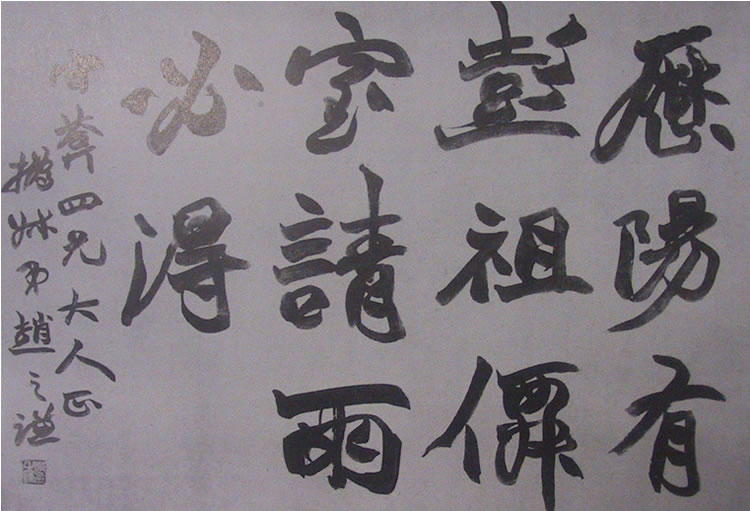 歷陽有
彭祖僊
室請雨
必得
葊四兄大人正
撝叔弟趙之謙